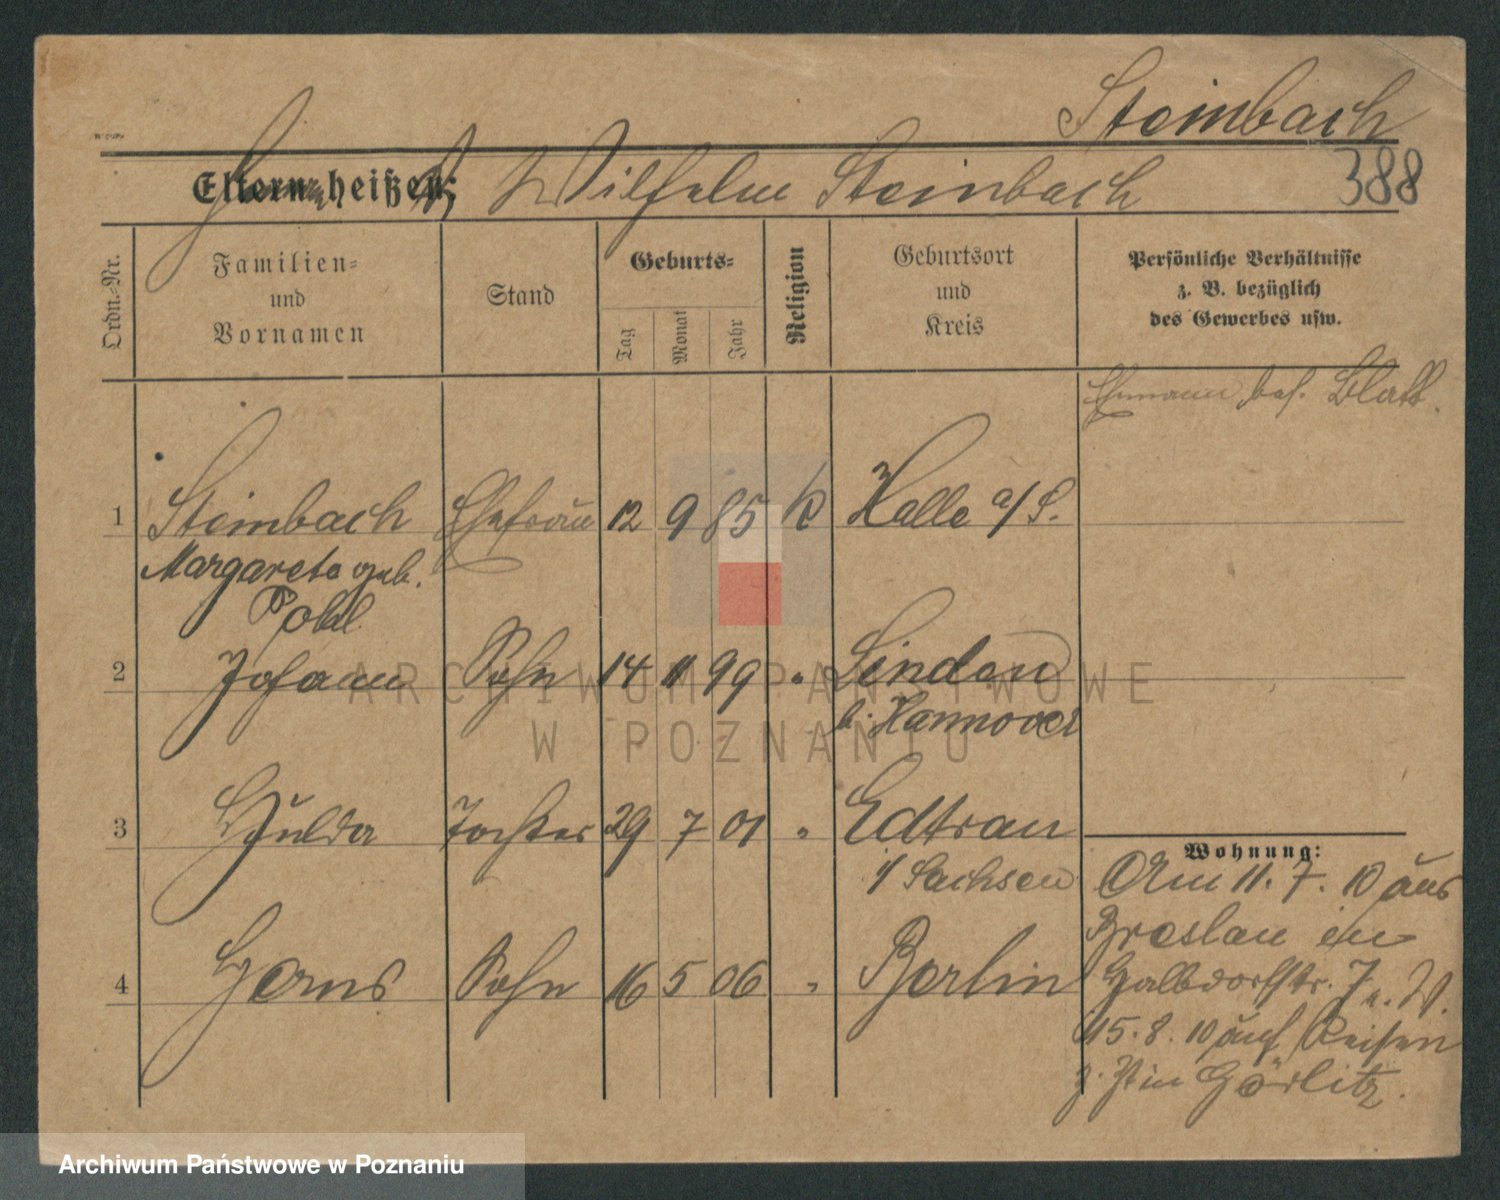 Steinbach
388
Eltern heißen: Wilhelm Steinbach
Ordn.-Nr.
Familien-
und
Vornamen
Stand
Geburts-
Tag
Monat
Jahr
Religion
Geburtsort
und
Kreis
Persönliche Verhältnisse
z. B. bezüglich
des Gewerbes usw.
Ehemann bes. Blatt.
1 Steinbach Ehefrau 12 9 85 k Halle a/S.
Margarete geb.
2 Johann Sohn 14 11 99 " Linden
b. Hannover
3 Hulda Tochter 29 7 01 "
i/ Sachsen
4 Hans Sohn 16 5 06 " Berlin
Wohnung:
Am 11. 7. 10 aus
Breslau in
15. 8. 10 auf Reisen
z. Zt in Görlitz.
ARCHIWUM PAŃSTWOWE
W POZNANIU
Archiwum Państwowe w Poznaniu